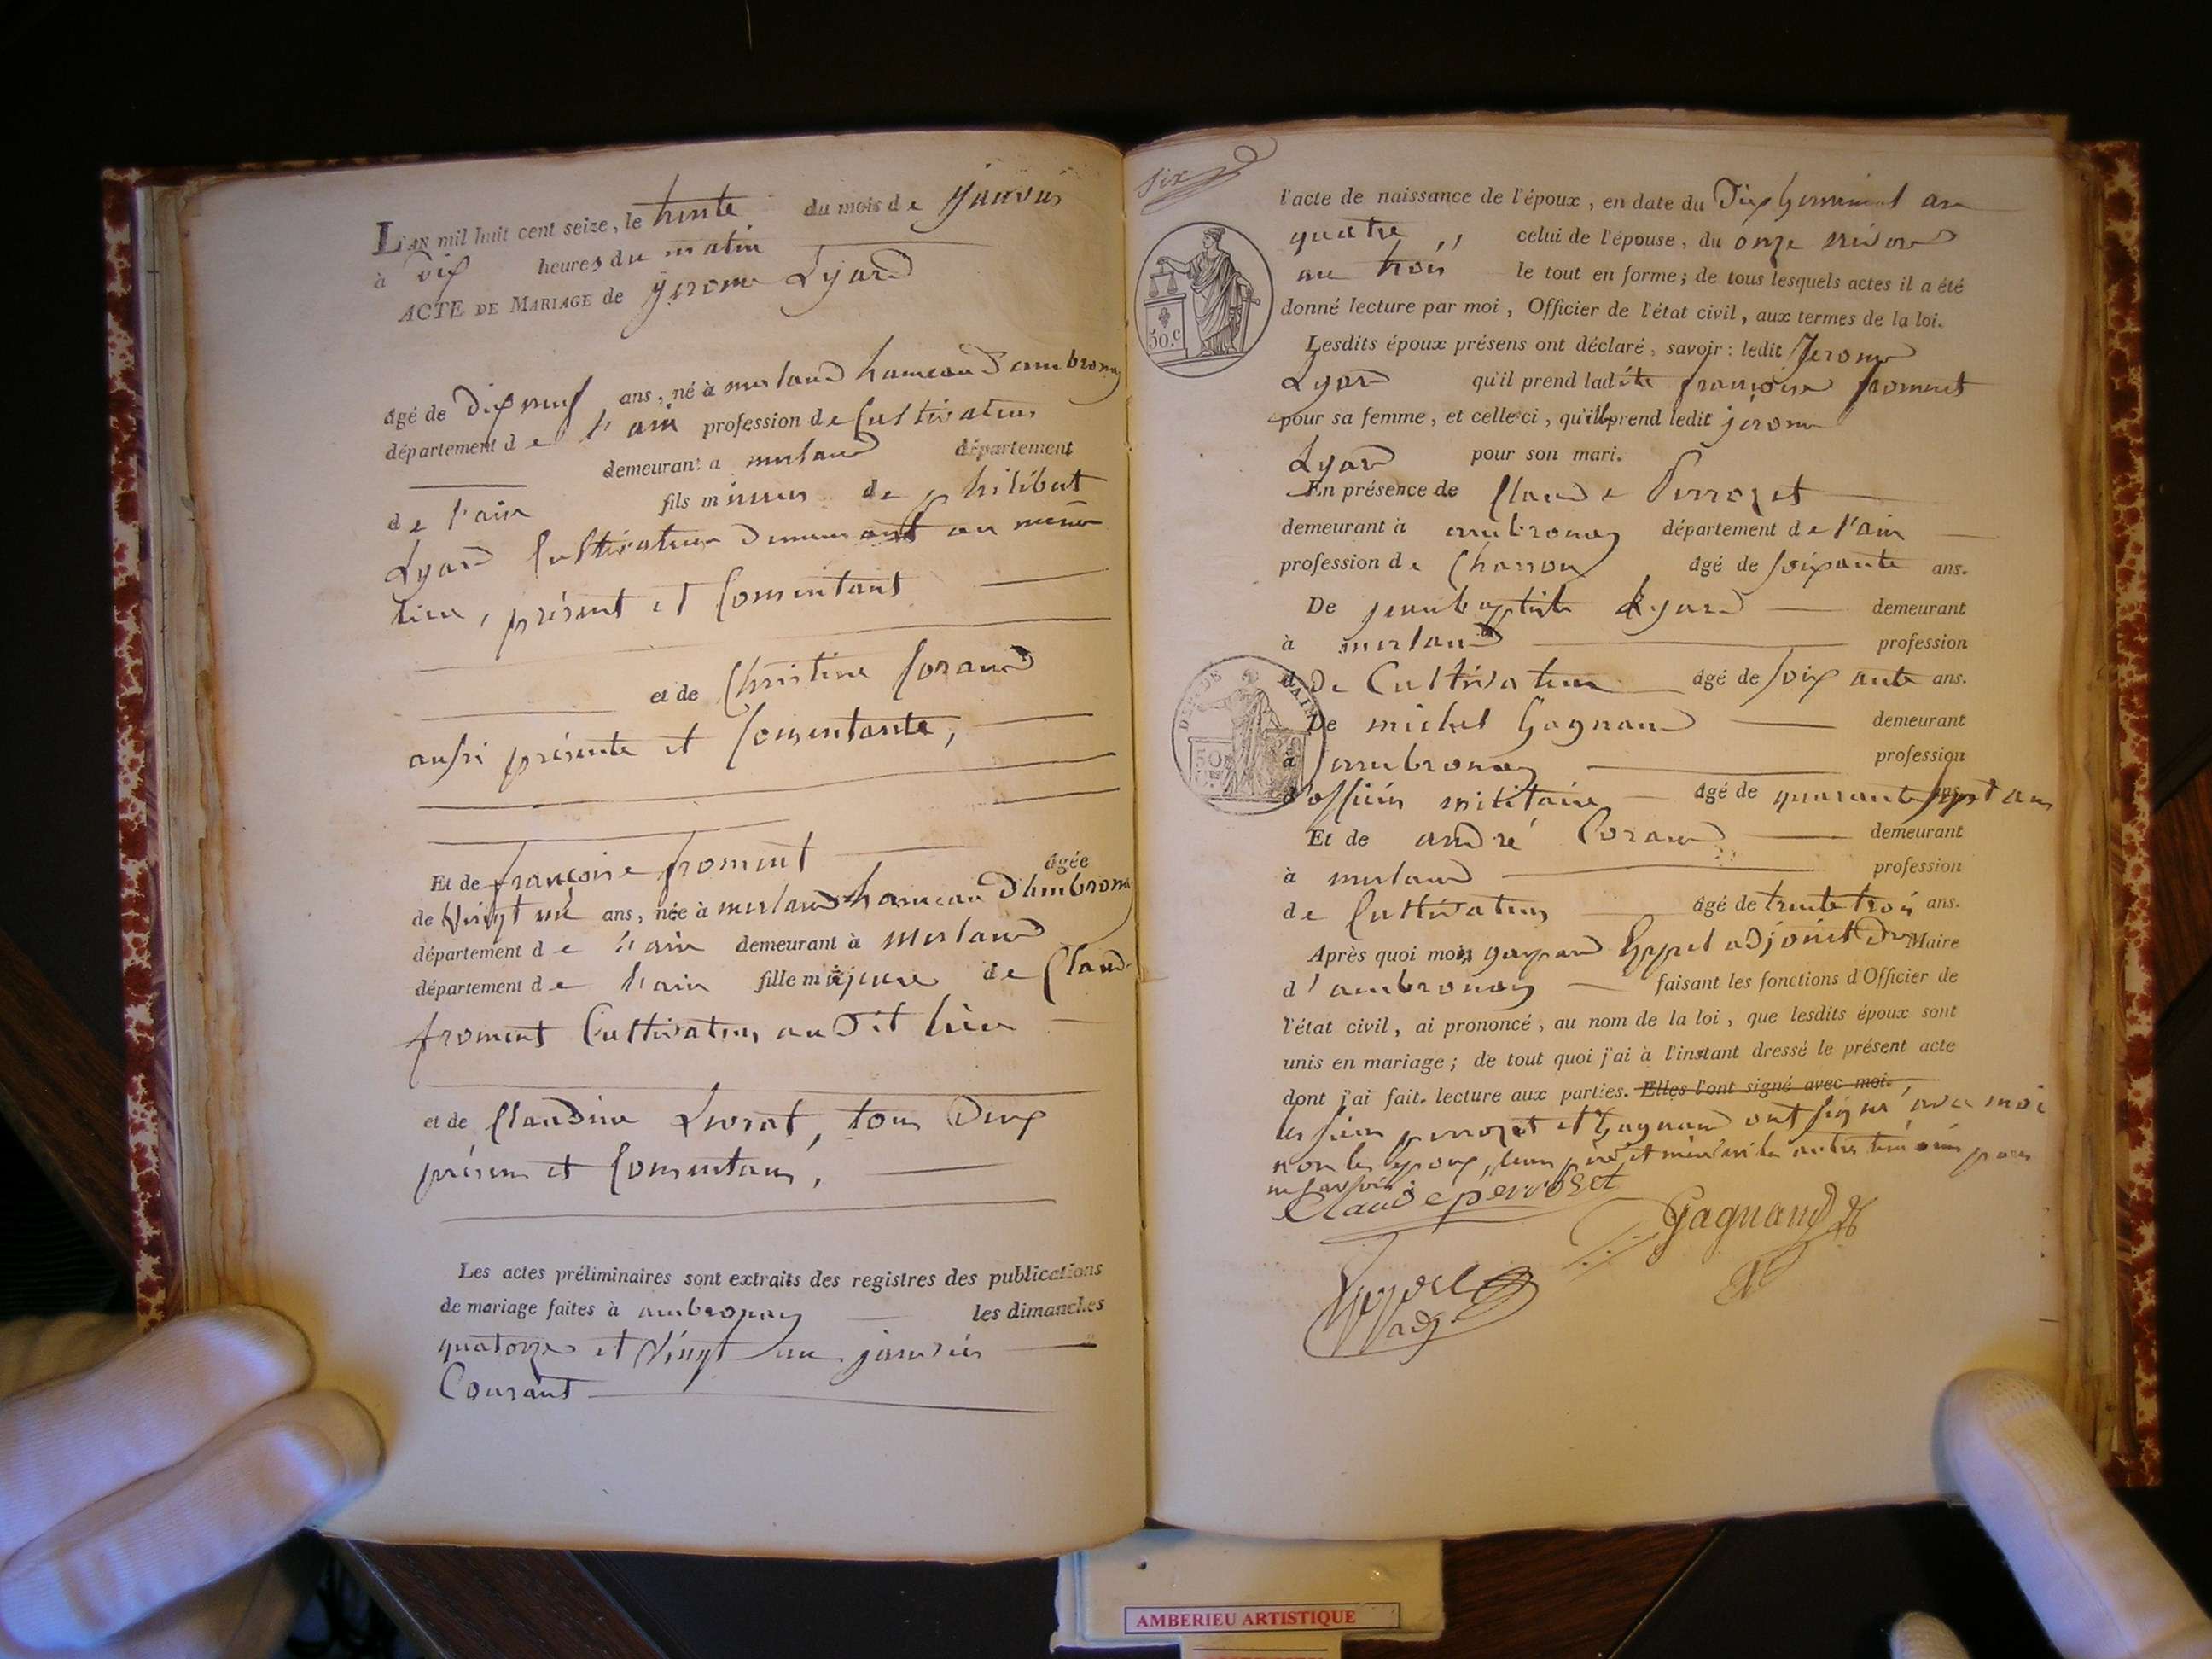 L'AN mil huit cent seize, le trente du mois de janvier
à dix heures du matin
ACTE DE MARIAGE de jerome Lyard
âgé de dix neuf ans, né à merland hameau d'ambronay
département de l'ain profession de Cultivateur
demeurant a merland département
de l'ain fils mineur de philibert
Lyard Cultivateur demeurant au même
lieu, présent et Consentant
et de Christine Coraud
aussi présente et Consentante,
Et de françoise froment âgée
de Vingt un ans, née à merland hameau d'Ambronay
département de l'ain demeurant à merland
département de l'ain fille majeure de Claude
froment Cultivateur audit lieu
et de Claudine Livrat, tous deux
présens et Consentans,
Les actes préliminaires sont extraits des registres des publications
de mariage faites à ambronay les dimanches
quatorze et Vingt un janvier
Courant
six
l'acte de naissance de l'époux, en date du Dix germinal an
quatre celui de l'épouse, du onze nivose
an trois le tout en forme; de tous lesquels actes il a été
donné lecture par moi, Officier de l'état civil, aux termes de la loi.
Lesdits époux présens ont déclaré, savoir: ledit Jerome
Lyard qu'il prend ladite françoise froment
pour sa femme, et celle-ci, qu'elle prend ledit jerome
Lyard pour son mari.
En présence de Claude Perrozet
demeurant à ambronay département de l'ain
profession de Charron âgé de soixante ans.
De jean baptiste Lyard demeurant
à merland profession
de Cultivateur âgé de soixante ans.
De michel Gagnand demeurant
à ambronay profession
d'officier militaire âgé de quarante sept ans
Et de andré Coraud demeurant
à merland profession
de Cultivateur âgé de trente trois ans.
Après quoi moi, gaspard Eppel adjoint du Maire
d'ambronay faisant les fonctions d'Officier de
l'état civil, ai prononcé, au nom de la loi, que lesdits époux sont
unis en mariage; de tout quoi j'ai à l'instant dressé le présent acte
dont j'ai fait lecture aux parties. Elles l'ont signé avec moi.
les sieurs perrozet et Gagnand ont signé avec moi
non les époux, leurs père et mère ni les autres témoins pour
ne savoir
Claude perrozet
Gagnand
adj.
50.C
AIN
50
AMBERIEU ARTISTIQUE